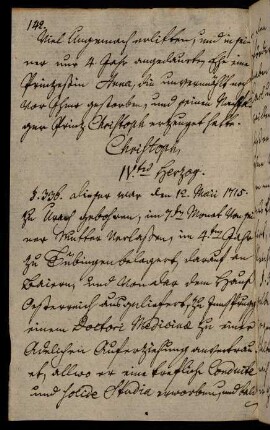 142.
Viel Ungemach erlitten, und in sei-
ner nur 4 Jahr angedauerten Ehe eine
Printzeßin Anna, die unvermählt
vor Ihme gestorben, und seinen Nachfol-
ger Printz Christoph erzeuget hatte.
Christoph,
IVter Herzog.
§. 336. Dieser war den 12. Maii 1515.
zu Urach gebohren, im 7ten Monat von sei-
ner Mutter verlassen, im 4ten Jahr
zu Tübingen belagert, darauf an
Baiern, und von dar dem Hauß
Oesterreich ausgeliefert, zu Insprugg
einem Doctori Medicinæ zu einer
Adelichen Auferziehung anvertrau-
et, allwo er eine trefliche Conduite
und solide Studia erworben, und bald